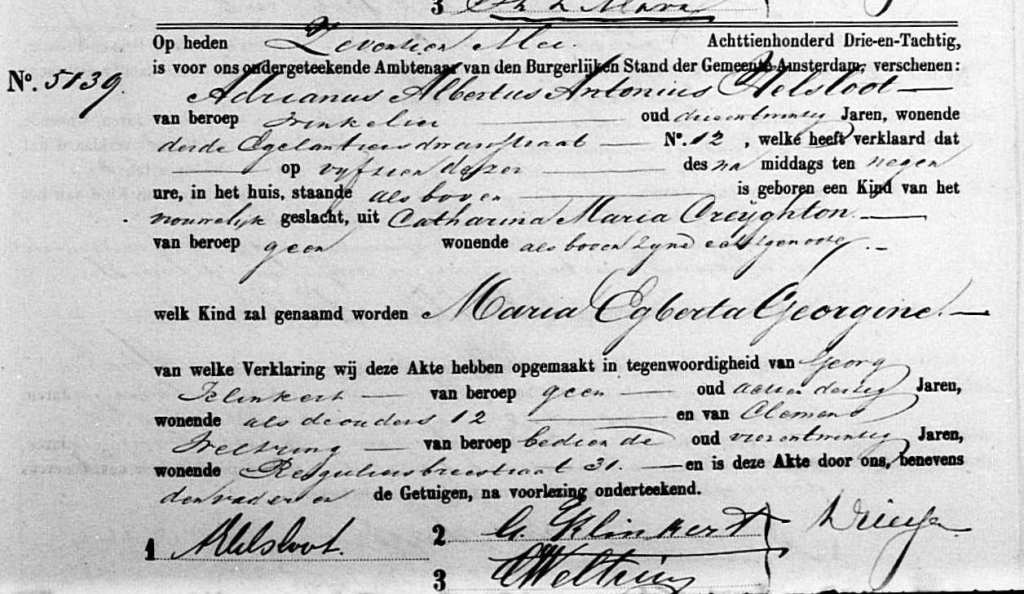 3
Op heden Zeventien Mei Achttienhonderd Drie-en-Tachtig,
Nº. 5139. is voor ons ondergeteekende Ambtenaar van den Burgerlijken Stand der Gemeente Amsterdam, verschenen:
Adrianus Albertus Antonius Helsloot
van beroep winkelier oud drieentwintig Jaren, wonende
derde Egelantiersdwarsstraat Nº. 12, welke heeft verklaard dat
op vyftien dezer des na middags ten negen
ure, in het huis, staande als boven is geboren een Kind van het
vrouwelijk geslacht, uit Catharina Maria Creyghton
van beroep geen wonende als boven zyne echtgenoote.
welk Kind zal genaamd worden Maria Egberta Georgine.
van welke Verklaring wij deze Akte hebben opgemaakt in tegenwoordigheid van Georg
Klinkert van beroep geen oud achtendertig Jaren,
wonende als de ouders 12 en van Clemens
Weltring van beroep bediende oud vierentwintig Jaren,
wonende Reguliersbreestraat 31. en is deze Akte door ons, benevens
den vader en de Getuigen, na voorlezing onderteekend.
1 AHelsloot. 2 G. Klinkert
3 CWeltring